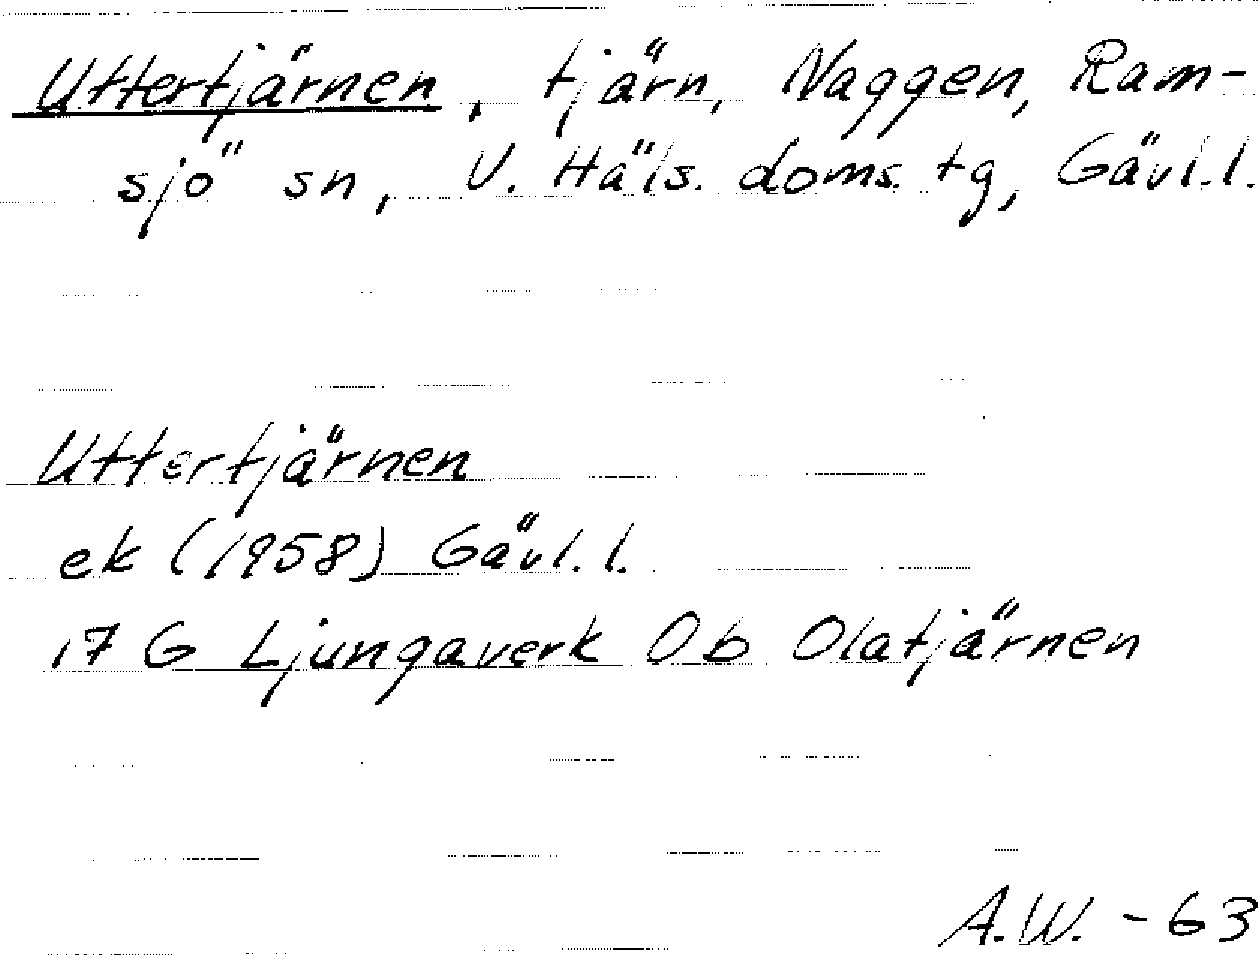 Uttertjärnen, tjärn, Naggen, Ram-
sjö sn, V. Häls. doms. tg, Gävl.l.
Uttertjärnen
ek (1958) Gävl.l.
17 G Ljungaverk Ob Olatjärnen
A.W. - 63